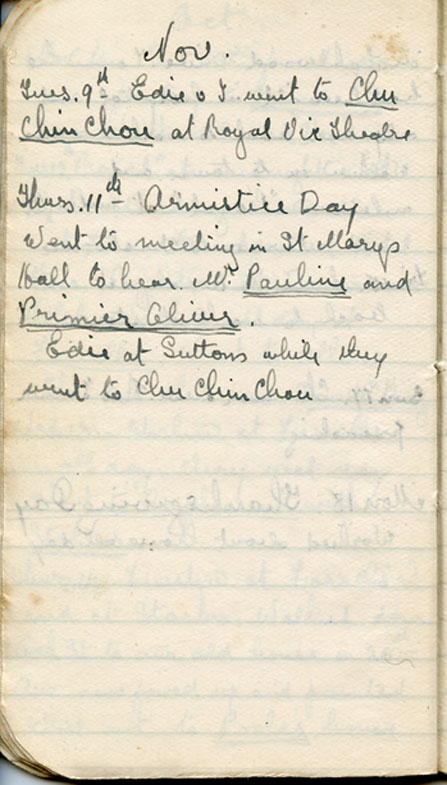 Nov.
Tues. 9th Edie & I went to Chu
Chin Chou at Royal Vic Theatre
Thurs. 11th Armistice Day
Went to meeting in St Marys
Hall to hear Mr. Pauline and
Primier Oliver.
Edie at Suttons while they
went to Chu Chin Chou